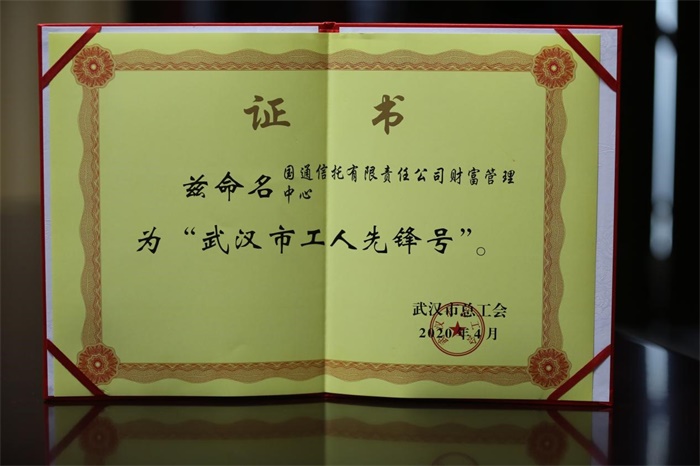 证 书
兹命名国通信托有限责任公司财富管理
中心
为“武汉市工人先锋号”。
武汉市总工会
2020年4月